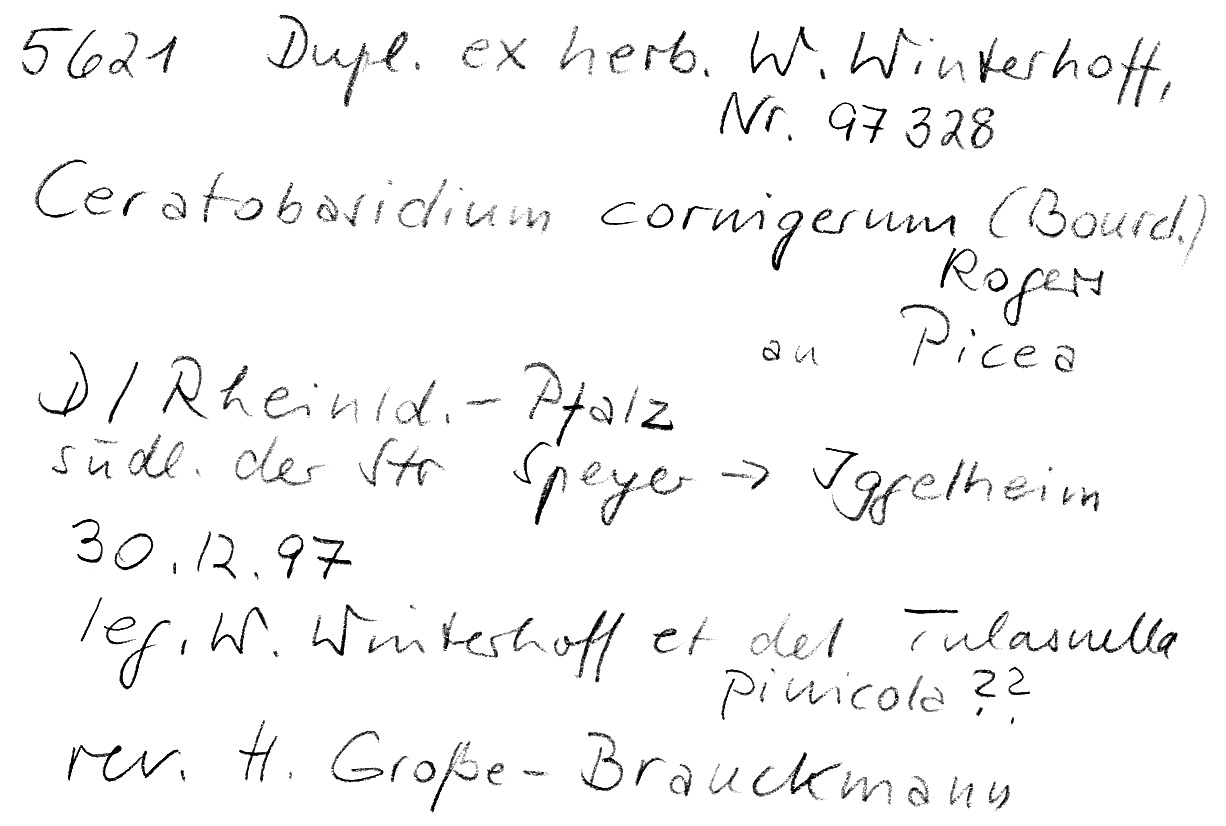 5621 Dupl. ex herb. W. Winterhoff,
Nr. 97 328
Ceratobasidium cornigerum (Bourd.)
Rogers
an Picea
D / Rheinld. - Pfalz
südl. der Str Speyer → Iggelheim
30.12.97
leg. W. Winterhoff et det Tulasnella
pinicola ??
rev. H. Große-Brauckmann